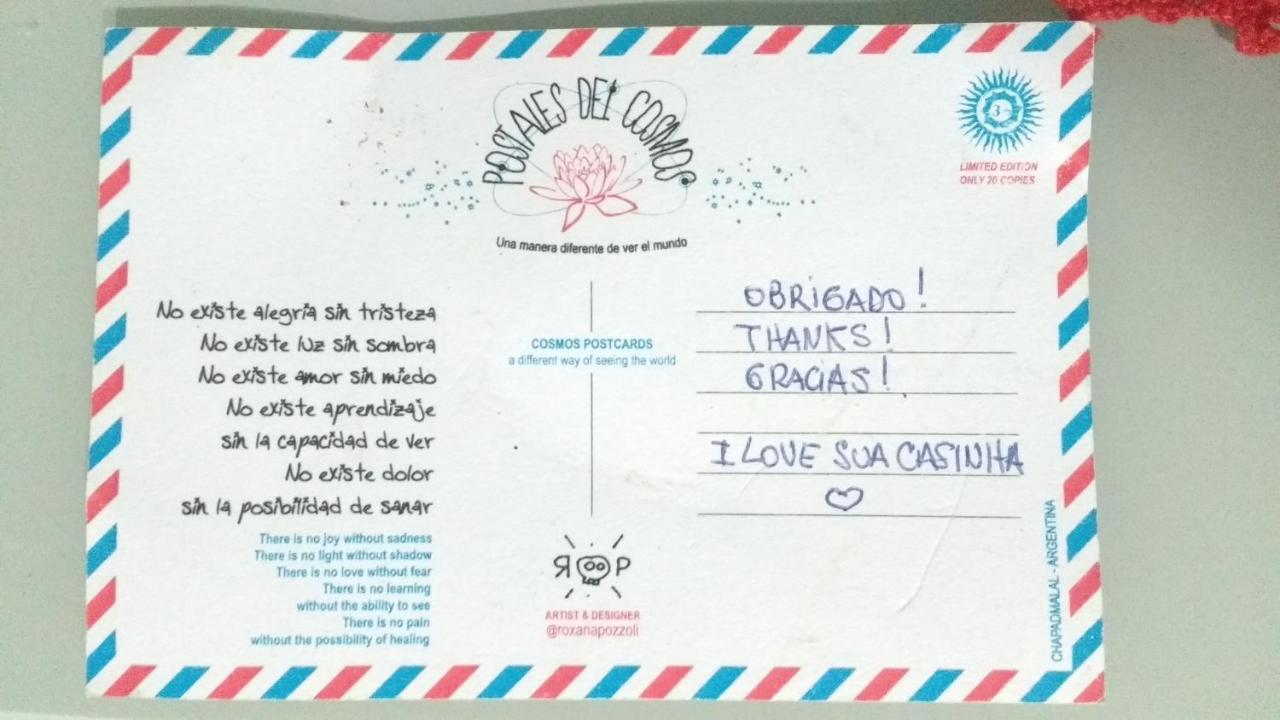 POSTALES DEL COSMOS
Una manera diferente de ver el mundo
LIMITED EDITION
ONLY 20 COPIES
No existe alegria sin tristeza
No existe luz sin sombra
No existe amor sin miedo
No existe aprendizaje
sin la capacidad de ver
No existe dolor
sin la posibilidad de sanar
There is no joy without sadness
There is no light without shadow
There is no love without fear
There is no learning
without the ability to see
There is no pain
without the possibility of healing
COSMOS POSTCARDS
a different way of seeing the world
ARTIST & DESIGNER
@roxanapozzoli
OBRIGADO!
THANKS!
GRACIAS!
I LOVE SUA CASINHA
CHAPADMALAL - ARGENTINA